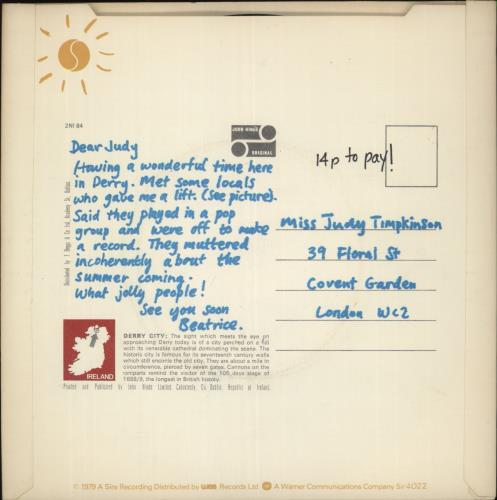 S
2NI 84
JOHN HINDE
ORIGINAL
14p to pay!
Dear Judy
Having a wonderful time here
in Derry. Met some locals
who gave me a lift. (See picture).
Said they played in a pop
group and were off to make
a record. They muttered
incoherently about the
summer coming.
What jolly people!
See you soon
Beatrice.
Miss Judy Timpkinson
39 Floral St
Covent Garden
London WC2
IRELAND
DERRY CITY: The sight which meets the eye on
approaching Derry today is of a city perched on a hill
with its venerable cathedral dominating the scene. The
historic city is famous for its seventeenth century walls
which still encircle the old city. They are about a mile in
circumference, pierced by seven gates. Cannons on the
ramparts remind the visitor of the 105 days siege of
1688/9, the longest in British history.
Printed and Published by John Hinde Limited, Cabinteely, Co. Dublin, Republic of Ireland.
© 1979 A Sire Recording Distributed by wea Records Ltd A Warner Communications Company Sir 4022